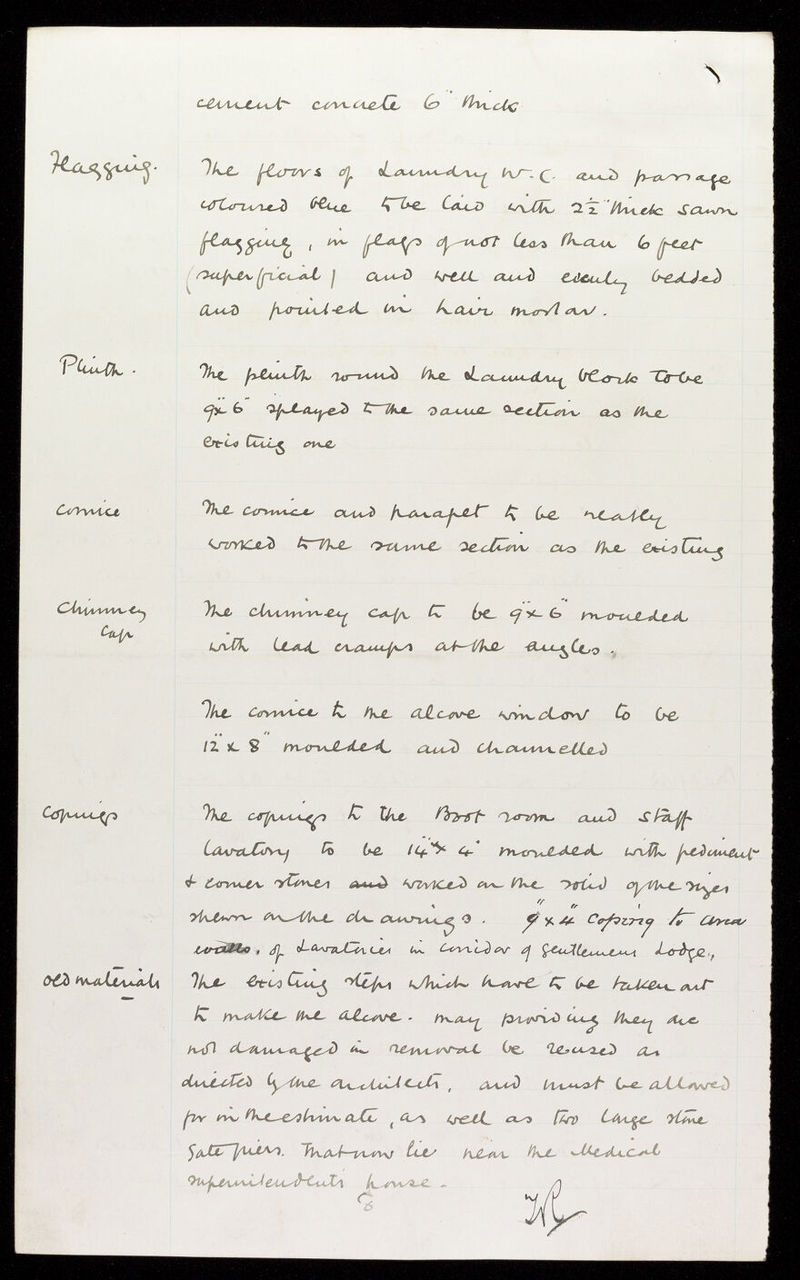 cement concrete 6" thick
Flagging. The floors of Laundry W.C. and passage
coloured blue to be laid with 2½" thick sawn
flagging, in flags of not less than 6 feet
(superficial) and well and evenly bedded
and pointed in hair mortar.
Plinth. The plinth round the Laundry block to be
9"x6" splayed to the same section as the
existing one
cornice The cornice and parapet to be neatly
worked to the same section as the existing
Chimney The chimney cap to be 9"x6" moulded
Cap with lead cramps at the angles.
The cornice to the alcove window to be
12"x8" moulded and channelled
Copings The copings to the Boot room and staff
lavatory to be 14"x4" moulded with pediment
& corner stones and worked on the solid of the sizes
shewn on the drawings. 9"x4" coping to area
walls, of Lavatories in corridor of Gentlemens Lodge,
Old materials The existing steps which have to be taken out
to make the alcove. may providing they are
not damaged in removal be reused as
directed by the architects, and must be allowed
for in the estimate, as well as two large stone
gate piers. that now lie near the Medical
superintendents house.